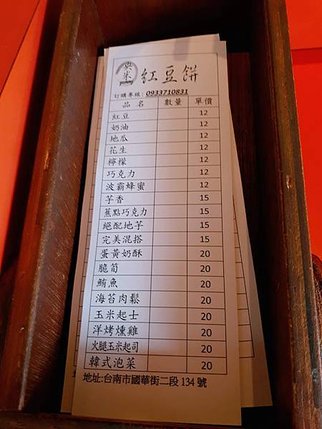 紅豆餅
訂購專線:0933710831
品名 數量 單價
紅豆 12
奶油 12
地瓜 12
花生 12
檸檬 12
巧克力 12
波霸蜂蜜 12
芋香 15
蕉點巧克力 15
絕配地芋 15
完美混搭 15
蛋黃奶酥 20
脆筍 20
鮪魚 20
海苔肉鬆 20
玉米起士 20
洋烤燻雞 20
火腿玉米起司 20
韓式泡菜 20
地址:台南市國華街二段134號